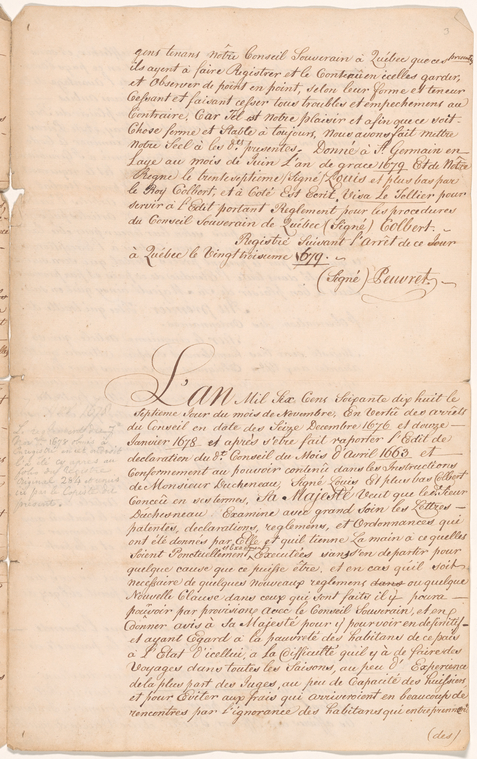 gens tenans nôtre Conseil Souverain à Québec que ces presentes
ils ayent à faire Registrer et le Contenu en icelles garder,
et Observer de point en point, selon leur forme et teneur
Cessant et faisant cesser tous troubles et empechemens au
Contraire, Car Tel est notre plaisir et afin que ce soit
Chose ferme et Stable à toujours, Nous avons fait mettre
Notre Scel à les dtes presentes. Donné à St. Germain en
Laye au mois de Juin L'an de grace 1679 Et de Notre
Regne le trente septieme /Signé/ Louis et plus bas par
le Roy Colbert, et à Coté Est Ecrit, Visa Le Tellier pour
servir à l'Edit portant Reglement pour les procedures
du Conseil Souverain de Québec (Signé) Colbert.
Registré Suivant l'Arrêt de ce Jour
à Québec le Vingt troisieme 1679.
(Signé) Peuvret.
L'an Mil Six Cens Soixante dix huit le
Septieme Jour du mois de Novembre, En Vertu des arrêts
du Conseil en date des Seize Decembre 1676 et douze
Janvier 1678 et après s'etre fait raporter l'Edit de
declaration du dt. Conseil du Mois d'Avril 1663 et
Conformement au pouvoir contenû dans les Instructions
de Monsieur Ducheneau, Signé Louis Et plus bas Colbert
Concû en ses termes, Sa Majesté Veut que le Sieur
Duchesneau Examine avec grand Soin les Lettres
patentes, declarations, reglemens, et Ordonnances qui
ont été donnés par Elle et qu'il tienne La main à ce qu'elles
Soient Ponctuellement Executées sans s'en departir pour
quelque cause que ce puisse être, et en cas qu'il soit
necessaire de quelques nouveaux reglement dans ou quelque
Nouvelle Clause dans ceux qui sont faits il y poura
poúvoir par provision avec le Conseil Souverain, et en
donner avis à Sa Majesté pour y pourvoir en definitif
et ayant Egard à la pauvreté des habitans de ce païs
à l'Etat d'icellui, à la Difficulté qu'il y a de faire des
Voyages dans toutes les Saisons, au peu d'Experience
de la plus part des Juges, au peu de Capacité des huissiers
et pour Eviter aux frais qui arriveroient en beaucoup de
rencontres par l'ignorance des habitans qui entreprennent
(des)